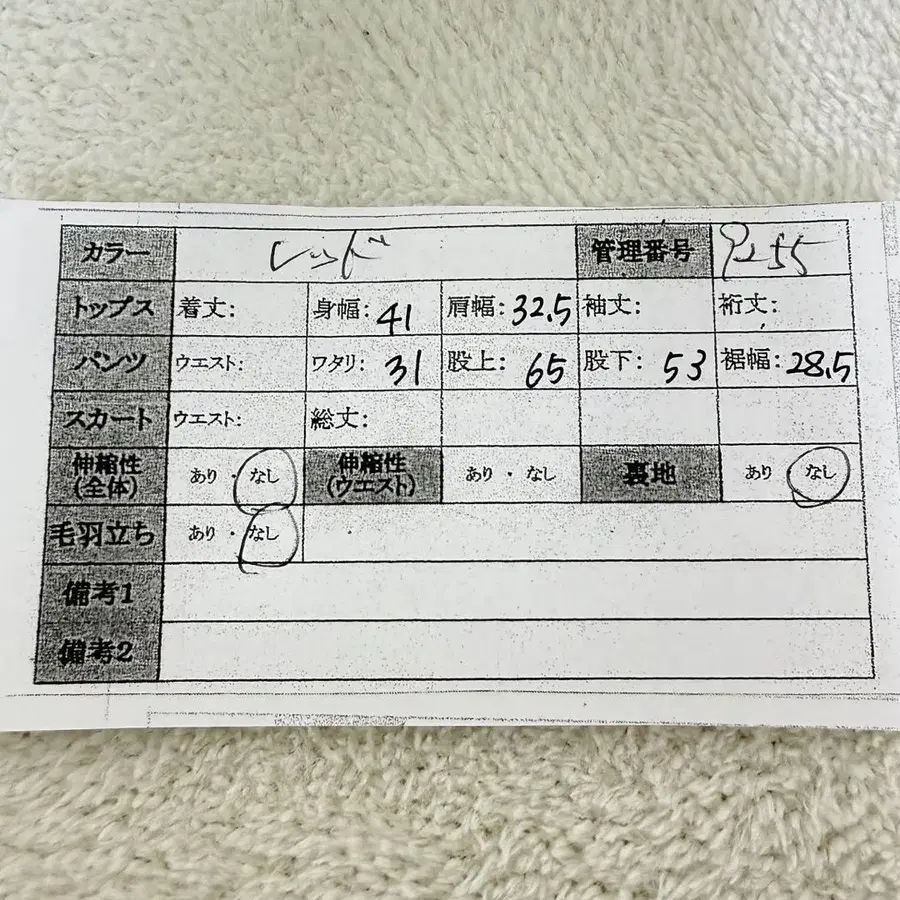 カラー レッド 管理番号
トップス 着丈: 身幅: 41 肩幅: 32.5 袖丈: 裄丈:
パンツ ウエスト: ワタリ: 31 股上: 65 股下: 53 裾幅: 28.5
スカート ウエスト: 総丈:
伸縮性(全体) あり・なし 伸縮性(ウエスト) あり・なし 裏地 あり なし
毛羽立ち あり・なし
備考1
備考2